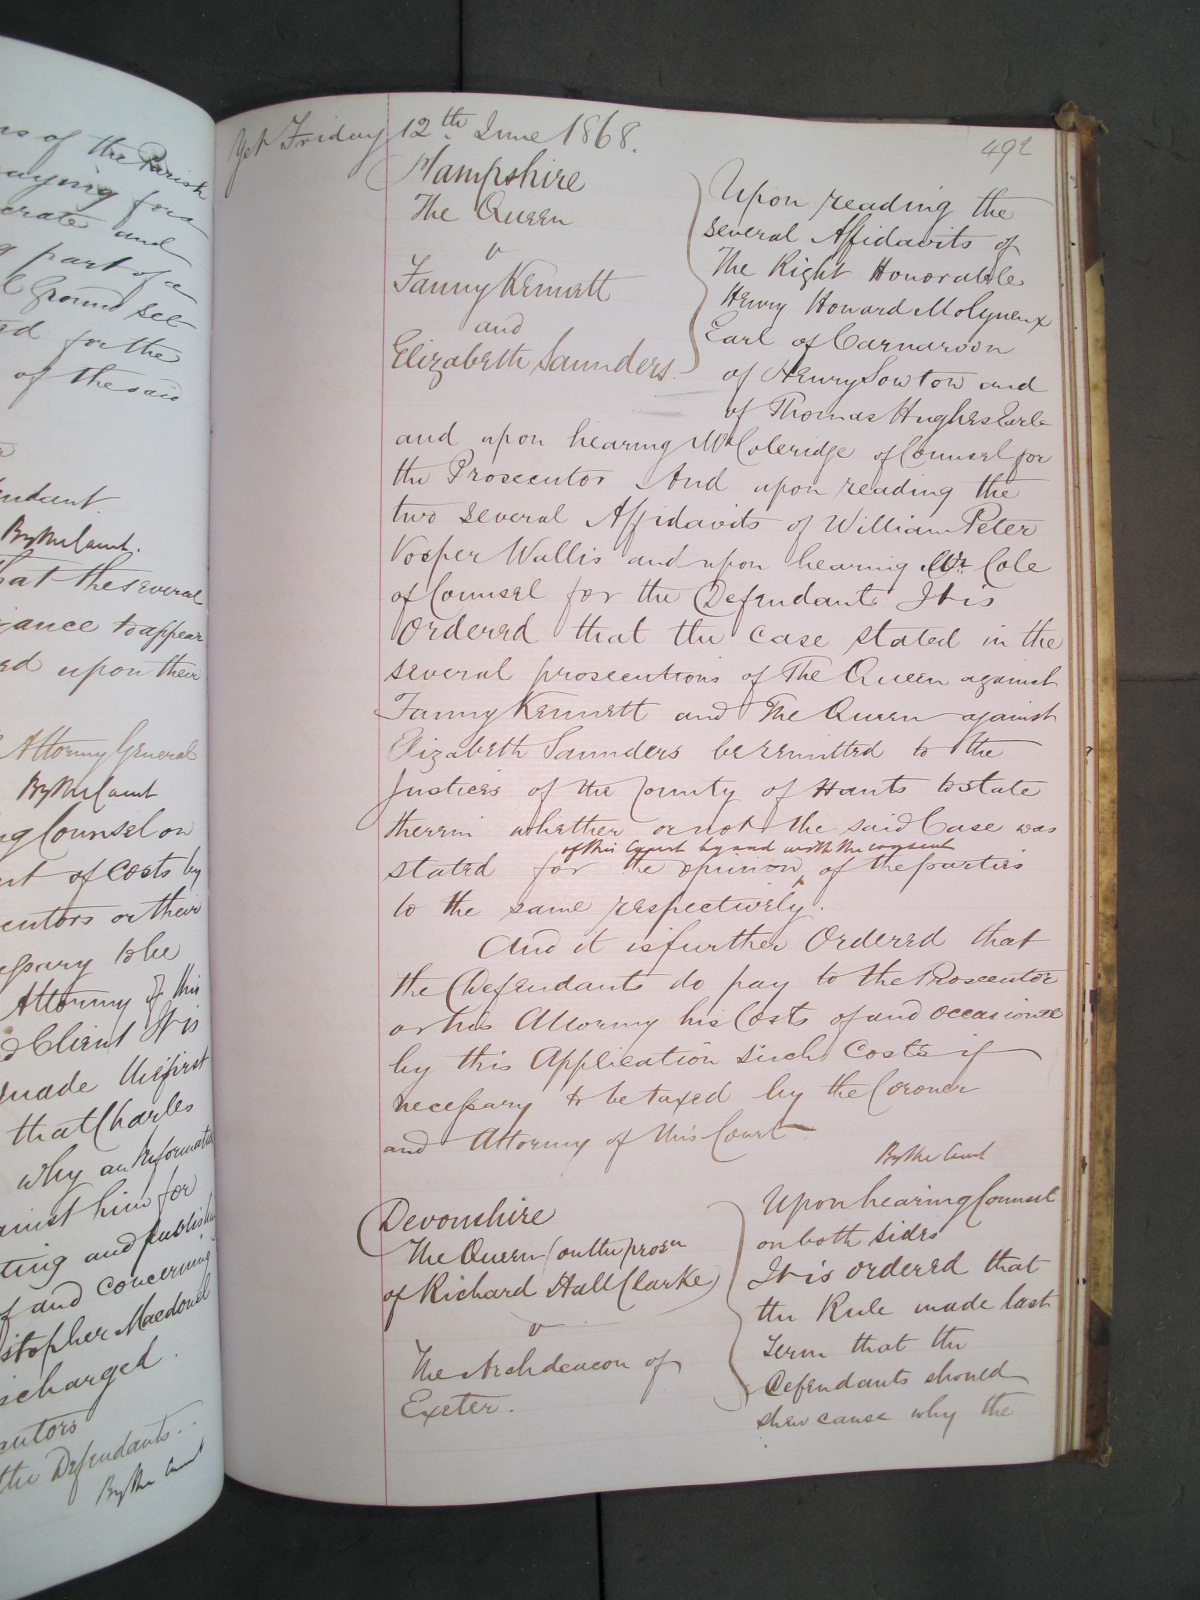 ns of the Parish
praying for a
erate and
g part of a
l Ground set
ed for the
of the said
endant.
By the Court.
that the several
izance to appear
ed upon their
Attorney General
By the Court
ng Counsel on
ent of Costs by
ecutors or their
essary to be
Attorney of this
d Client It is
made the first
that Charles
why an Information
against him for
ting and publishing
of and concerning
istopher Macdonel
ischarged.
cutors
the Defendants.
By the Court
Yet Friday 12th June 1868.
492
Hampshire
The Queen
v
Fanny Kennett
and
Elizabeth Saunders.
Upon reading the
several Affidavits of
The Right Honorable
Henry Howard Molyneux
Earl of Carnarvon
of Henry Sowton and
of Thomas Hughes Earle
and upon hearing Mr Coleridge of Counsel for
the Prosecutor And upon reading the
two several Affidavits of William Peter
Vosper Wallis and upon hearing Mr Cole
of Counsel for the Defendants It is
Ordered that the case stated in the
several prosecutions of The Queen against
Fanny Kennett and The Queen against
Elizabeth Saunders be remitted to the
Justices of the County of Hants to state
therein whether or not the said Case was
of this Court by and with the consent
stated for the opinion of the parties
to the same respectively.
And it is further Ordered that
the Defendants do pay to the Prosecutor
or his Attorney his Costs of and occasioned
by this Application such Costs if
necessary to be taxed by the Coroner
and Attorney of this Court
By the Court
Devonshire
The Queen (on the prosn
of Richard Hall Clarke)
v
The Archdeacon of
Exeter.
Upon hearing Counsel
on both sides
It is ordered that
the Rule made last
Term that the
Defendants should
shew cause why the